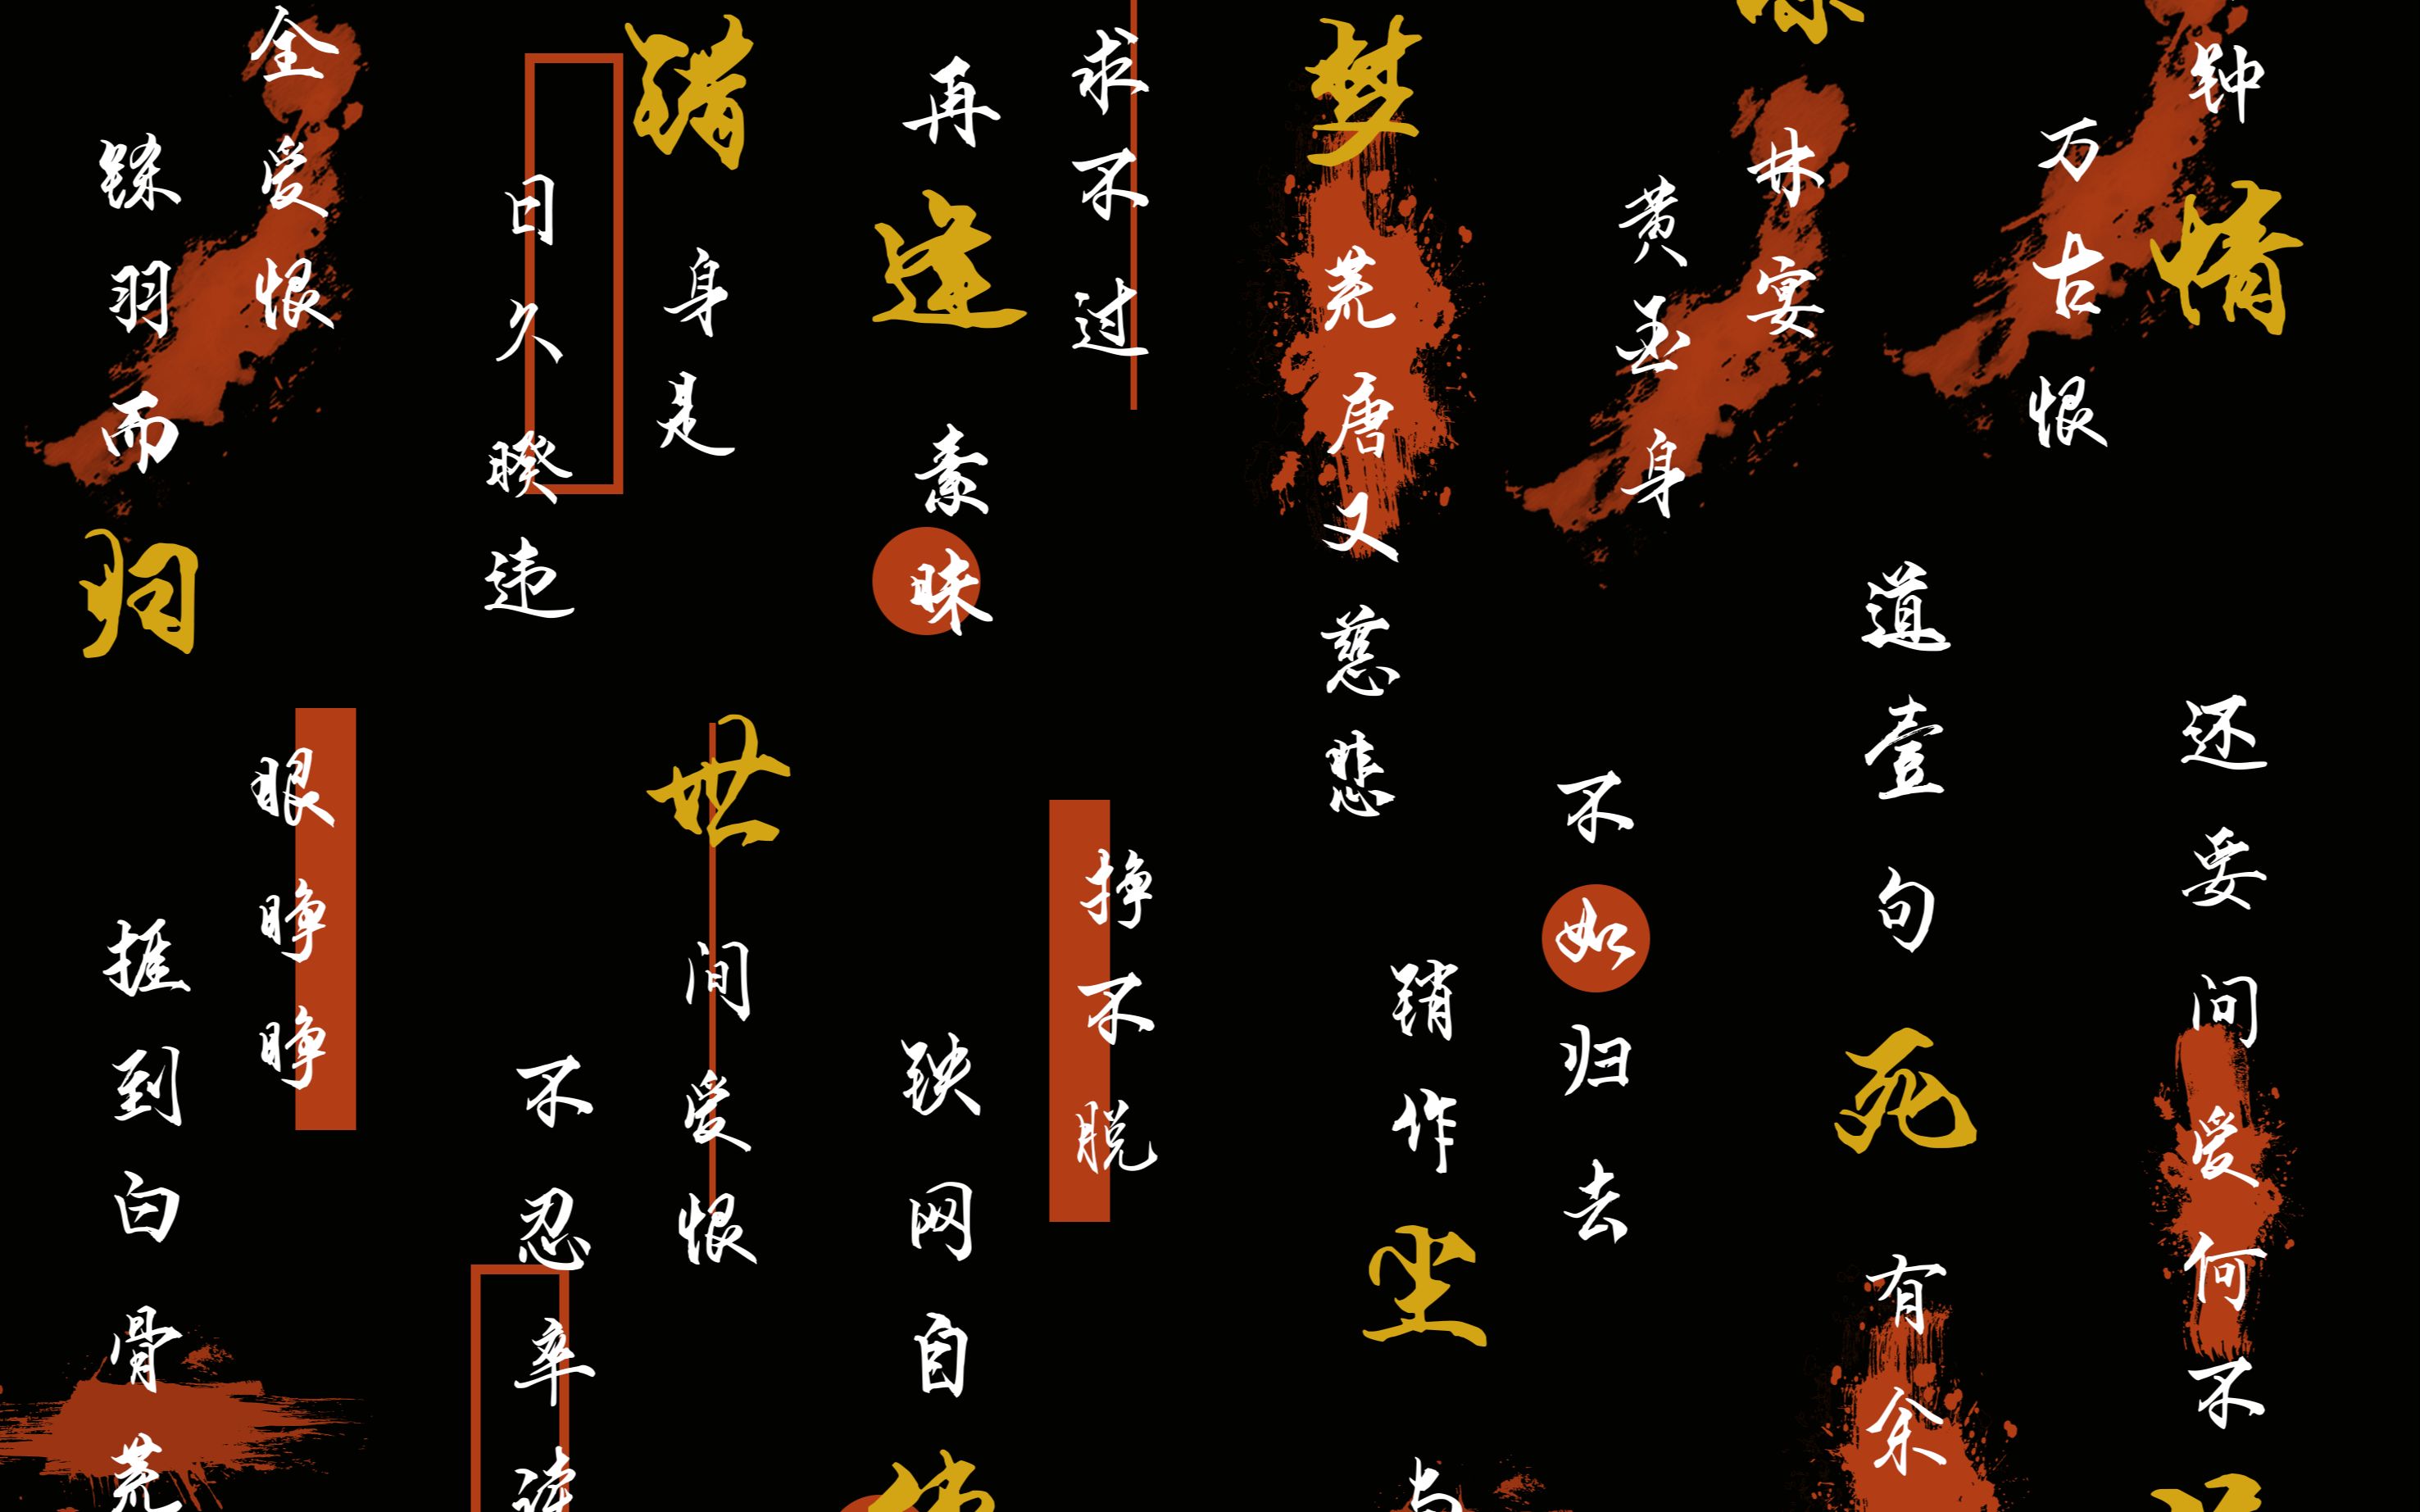 钟情
万古恨
黄 身
梦荒唐又慈悲
求不过
再逢素昧
猜身是
日久暌违
全爱恨
铩羽而归
还要问爱何不
道壹句死
有余
不如归去
销作尘
挣不脱
铁网自
世间爱恨
不忍卒读
眼睁睁
捱到白骨荒